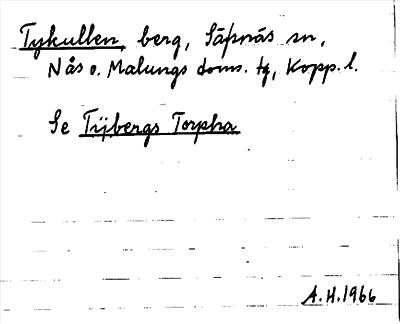 Tykullen, berg, Säfsnäs sn,
Nås o. Malungs doms. tg, Kopp. l.
Se Tijbergs Torpha
A.H. 1966